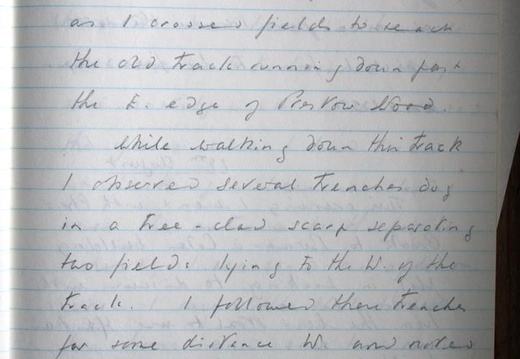 as I crossed fields to reach
the old track running down past
the E. edge of Wood.
While walking down this track
I observed several trenches dug
in a tree-clad scarp separating
two fields lying to the W. of the
track. I followed these trenches
for some distance W. and noted